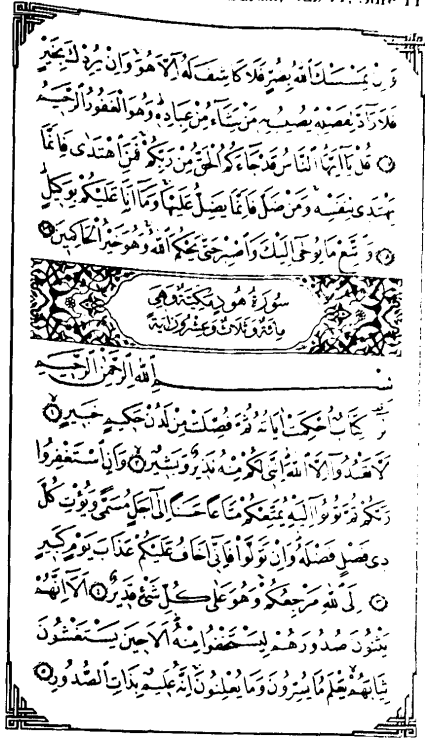 وَاِنْ يَمْسَسْكَ اللّٰهُ بِضُرٍّ فَلَا كَاشِفَ لَهُٓ اِلَّا هُوَۚ وَاِنْ يُرِدْكَ بِخَيْرٍ
فَلَا رَآدَّ لِفَضْلِهٖ يُصٖيبُ بِهٖ مَنْ يَشَٓاءُ مِنْ عِبَادِهٖ وَهُوَ الْغَفُورُ الرَّحٖيمُ
قُلْ يَٓا اَيُّهَا النَّاسُ قَدْ جَٓاءَكُمُ الْحَقُّ مِنْ رَبِّكُمْ فَمَنِ اهْتَدٰى فَاِنَّمَا
يَهْتَدٖى لِنَفْسِهٖ وَمَنْ ضَلَّ فَاِنَّمَا يَضِلُّ عَلَيْهَا وَمَٓا اَنَا عَلَيْكُمْ بِوَكٖيلٍ
وَاتَّبِعْ مَا يُوحٰٓى اِلَيْكَ وَاصْبِرْ حَتّٰى يَحْكُمَ اللّٰهُ وَهُوَ خَيْرُ الْحَاكِمٖينَ
سُورَةُ هُودٍ مَكِّيَّةٌ وَهِيَ
مِائَةٌ وَثَلَاثٌ وَعِشْرُونَ اٰيَةً
بِسْمِ اللّٰهِ الرَّحْمٰنِ الرَّحٖيمِ
الٓرٰ كِتَابٌ اُحْكِمَتْ اٰيَاتُهُ ثُمَّ فُصِّلَتْ مِنْ لَدُنْ حَكٖيمٍ خَبٖيرٍ ١
اَلَّا تَعْبُدُٓوا اِلَّا اللّٰهَ اِنَّنٖى لَكُمْ مِنْهُ نَذٖيرٌ وَبَشٖيرٌ ٢ وَاَنِ اسْتَغْفِرُوا
رَبَّكُمْ ثُمَّ تُوبُٓوا اِلَيْهِ يُمَتِّعْكُمْ مَتَاعًا حَسَنًا اِلٰٓى اَجَلٍ مُسَمًّى وَيُؤْتِ كُلَّ
ذٖى فَضْلٍ فَضْلَهُ وَاِنْ تَوَلَّوْا فَاِنّٖٓى اَخَافُ عَلَيْكُمْ عَذَابَ يَوْمٍ كَبٖيرٍ
٣ اِلَى اللّٰهِ مَرْجِعُكُمْ وَهُوَ عَلٰى كُلِّ شَیْءٍ قَدٖيرٌ ٤ اَلَٓا اِنَّهُمْ
يَثْنُونَ صُدُورَهُمْ لِيَسْتَخْفُوا مِنْهُ اَلَا حٖينَ يَسْتَغْشُونَ
ثِيَابَهُمْ يَعْلَمُ مَا يُسِرُّونَ وَمَا يُعْلِنُونَ اِنَّهُ عَلٖيمٌ بِذَاتِ الصُّدُورِ ٥